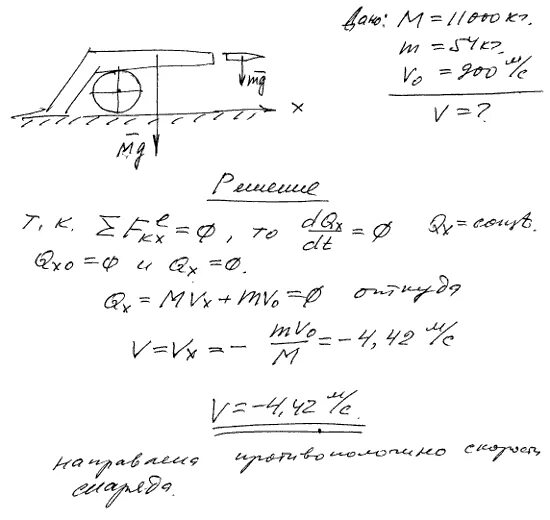 Дано: M = 11000 кг.
m = 54 кг.
V₀ = 900 м/с
V = ?
mg
x
Mg
Решение
Т. к. ΣFᵉₖₓ = 0, то dQₓ/dt = 0 Qₓ = const.
Qₓ₀ = 0 и Qₓ = 0.
Qₓ = MVₓ + mV₀ = 0 откуда
V = Vₓ = - mV₀/M = -4,42 м/с
V = -4,42 м/с.
направлена противоположно скорости
снаряда.